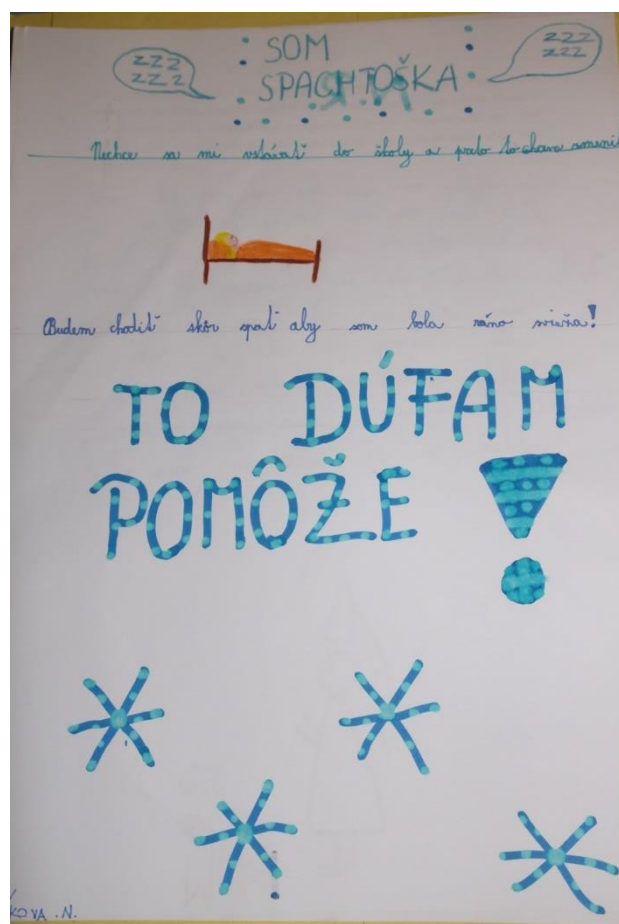 zzz
zzz
SOM
SPACHTOŠKA
zzz
zzz
Nechce sa mi vstávať do školy a preto to chcem zmeniť
Budem chodiť skôr spať aby som bola ráno svieža!
TO DÚFAM
POMÔŽE !
KOVA .N.